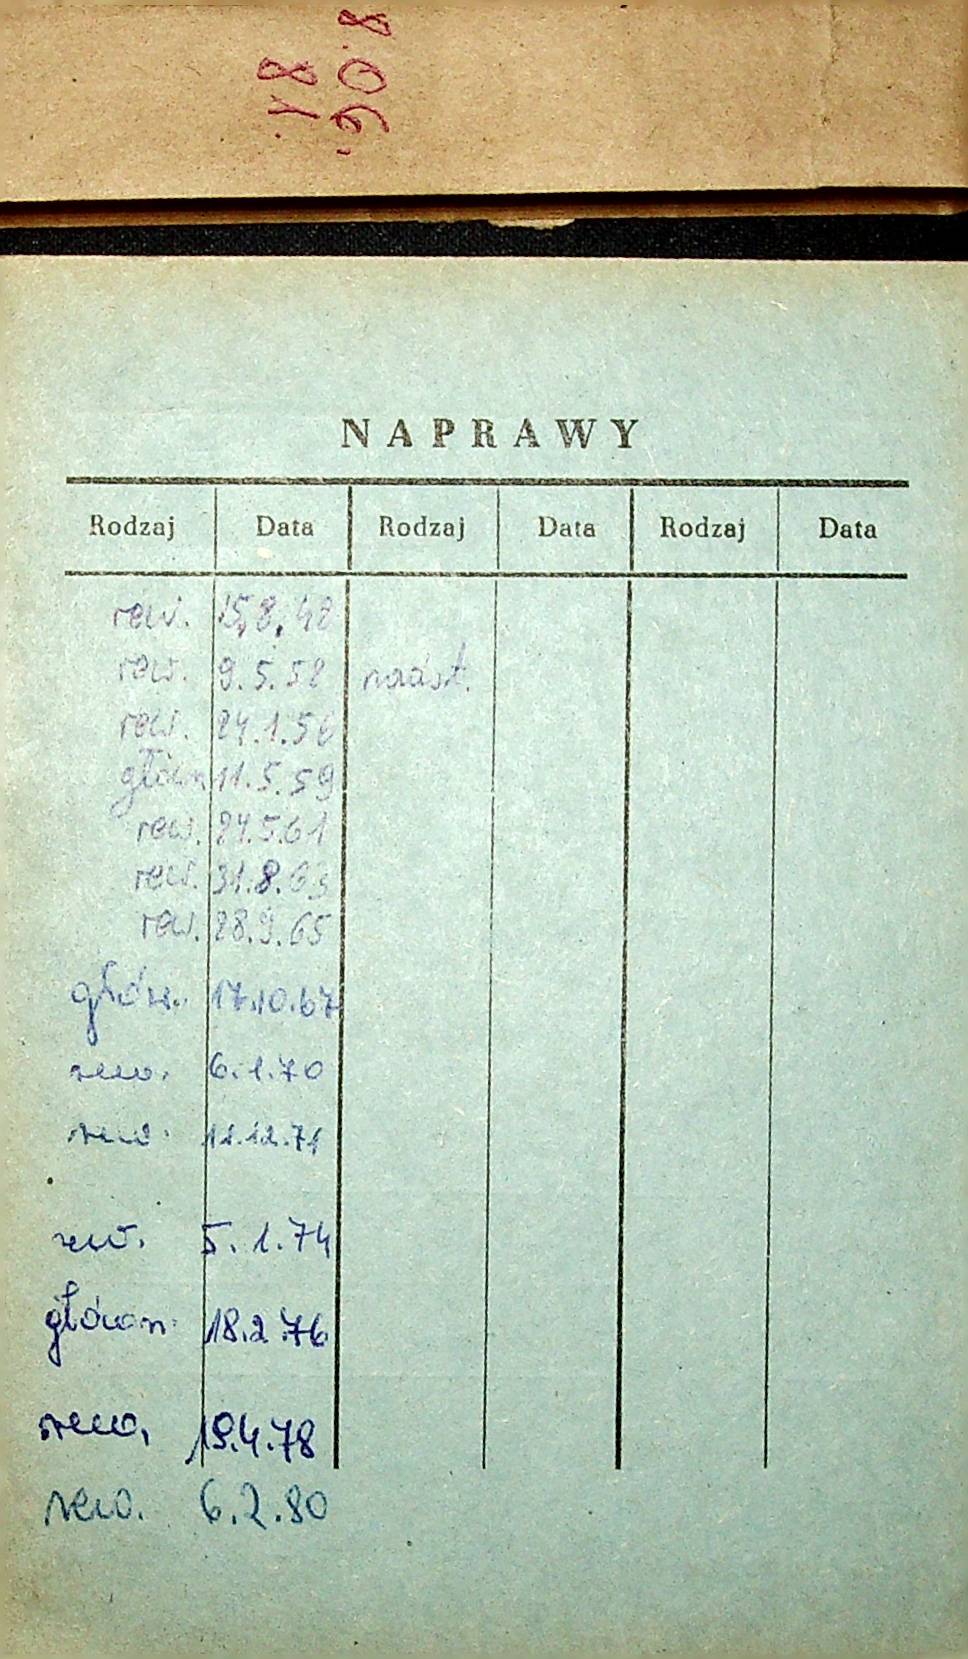 NAPRAWY
Rodzaj Data Rodzaj Data Rodzaj Data
rew. 15.8.48
rew. 9.5.52
rew. 24.1.56
główn 11.5.59
rew. 24.5.61
rew. 31.8.63
rew. 28.9.65
główn. 17.10.67
rew. 6.1.70
rew. 11.12.71
rew. 5.1.74
główn. 18.2.76
rew. 19.4.78
rew. 6.2.80